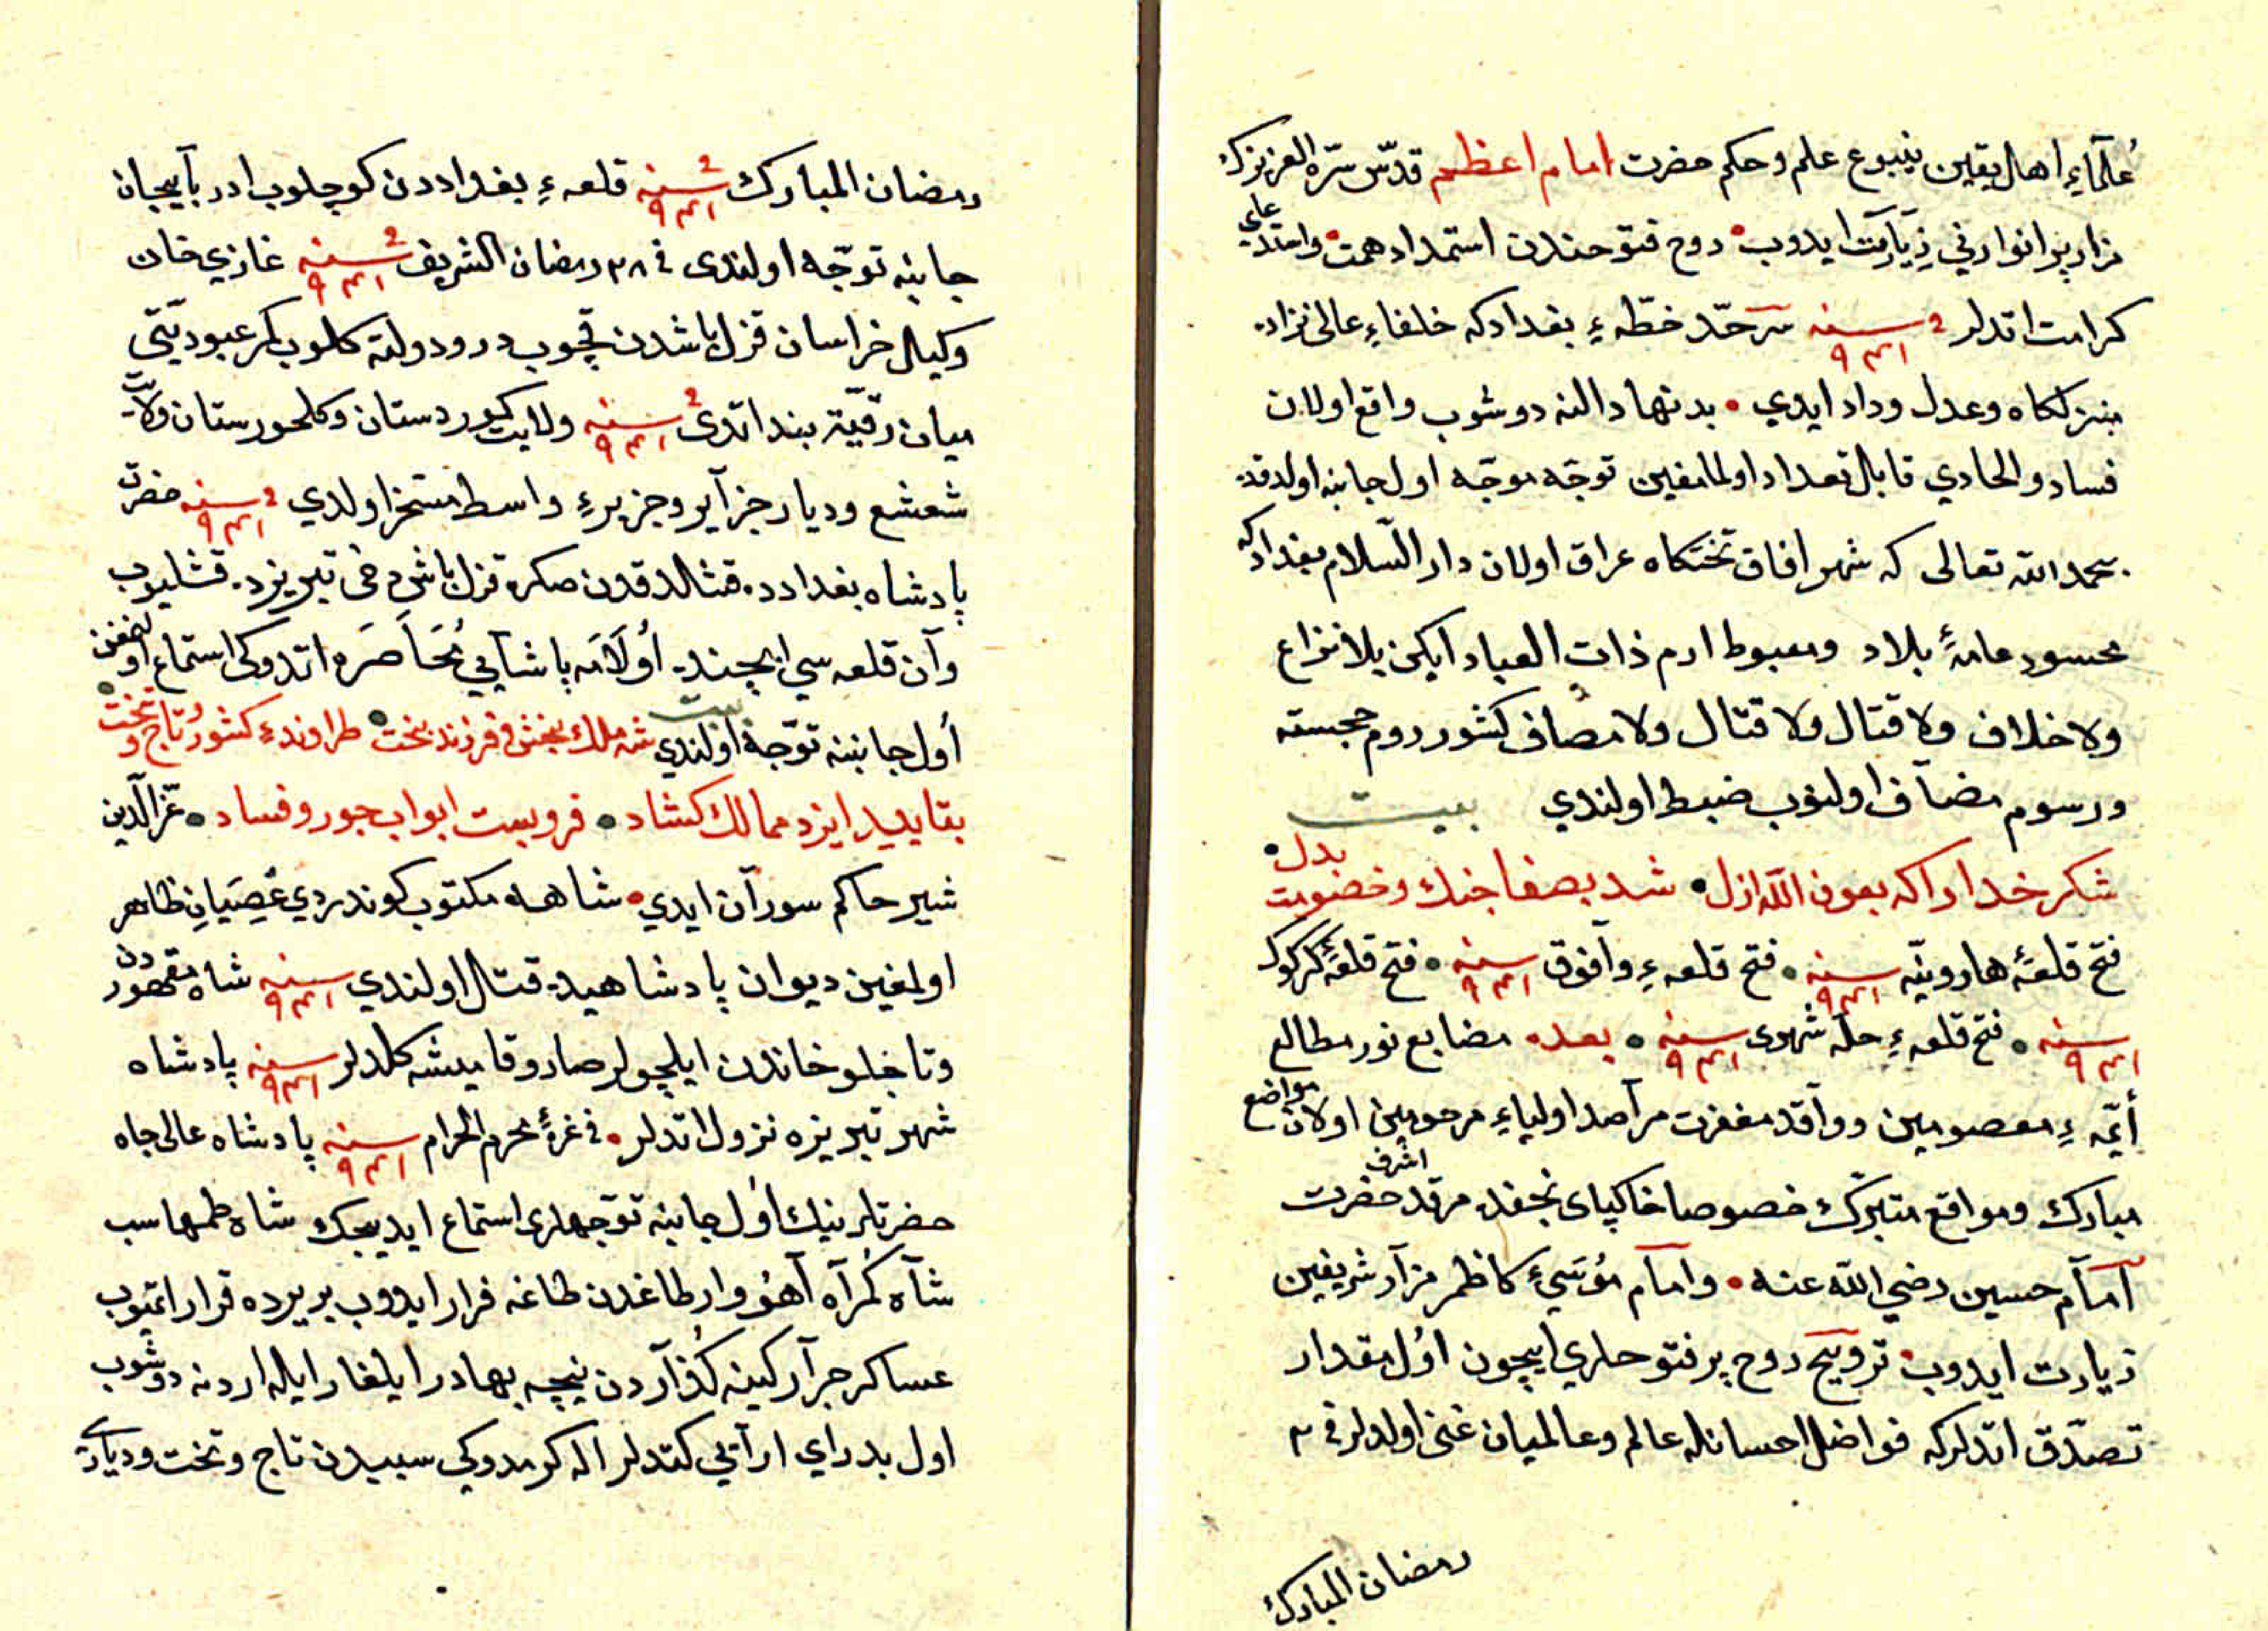 علمآءِ اهل يقين ينبوع علم و حكم حضرت امام اعظم قدّس سرّه العزيزك
مزار پر انوارني زيآرت ايدوب روح فتوحندن استمداد همت و استدعاي
كرامت اتدلر سنه ٩٤١ سرحدّ خطّهءِ بغداد كه خلفاءِ عالى نژاد
منزلكاه و عدل و داد ايدي بدنهاد النه دوشوب واقع اولان
فساد و الحادي قابل تعداد اولمامغين توجّه موجّه اول جانبه اولدقده
بحمد الله تعالى كه شهر افاق تختكاه عراق اولان دار السّلام بغداد كه
محسود عامهٔ بلاد ومغبوط ارم ذات العماد ايكن بلا نزاع
ولا خلاف ولا قتال ولا قتال ولا مصاف كشور روم خجسته
ورسوم مضآف اولنوب ضبط اولندي بيت
شكر خدا را كه بعون اللّه ازل شد بصفا جنك و خصومت بدل
فتح قلعهٔ هارونيّه سنه ٩٤١ فتح قلعهءِ وآفوق سنه ٩٤١ فتح قلعهٔ كركوك
سنه ٩٤١ فتح قلعهءِ حلّه شهرى سنه ٩٤١ بعده مضابع نور مطالع
أيمّهءِ معصومين و وآقد مغفرت مرآصد اولياءِ مرحومين اولان مواضع
مبارك و مواقع متبرّك خصوصا خاكپاى نجفده مرقد اشرف حضرت
امآم حسين رضي اللّه عنه و امآم مُوسَيءِ كاظم مزآر شريفين
زيارت ايدوب ترويح روح پر فتوحلري ايچون اوُل مقدار
تصدّق اتدلركه فواضل احسانله عالم و عالميان غنى اولدلر فى ٣
رمضان المبارك
رمضان المبارك سنه ٩٤١ قلعهءِ بغداددن كوچلوب ادربآيجان
جانبنه توجّه اولندى فى ٢٨ رمضان الشريف سنه ٩٤١ غازي خان
وكيل خراسان قزلباشدن قچوب در و دولته كلوب كمر عبوديّتى
ميان رقّيّته بند اتدى سنه ٩٤١ ولايت كوردستان و كلحورستان ولايت
شعشع و ديار جزآير و جزيرهءِ واسط مسّخر اولدي سنه ٩٤١ حضرت
پادشاه بغدادده قشلدقدن صكره قزلباش دخى تبريزده قشليوب
وآن قلعه سي ايچنده اُولَامَه پاشآيي مُحَاصَره اتدوكى استماع اولنمغن
أول جانبنه توّجه اولندي بيت شه ملك بخش فرزند بخت طرازندهءِ كشور و تاج و تخت
بتاييد ايزد ممالك كشاد فرو بست ابواب جور و فساد عزّ الدّين
شير حاكم سورآن ايدي شاهه مكتوب كوندردي عِصيَانِ ظاهر
اولمغين ديوان پادشاهيده قتل اولندي سنه ٩٤١ شاه مقهوردن
و تاجلو خاندن ايلچولر صاروقاميشه كلدلر سنه ٩٤١ پادشاه
شهر تبريزه نزول اتدلر فى غرهٔ محرم الحرام سنه ٩٤١ پادشاه عالى جاه
حضرتلرينك اوُل جانبنه توّجهلرى استماع ايديجك شاه طهماسب
شآه كُمرَآه آهُو وار طاغدن طاغه فرار ايدوب بر يرده قرار اتميوب
عساكر جرآر كينه كُذآردن نيچه بهادر ايلغار ايله اردنه دوشوب
اول بد راي ارآيي كتدلر اله كرمدوكي سببدن تاج و تخت و ديارى